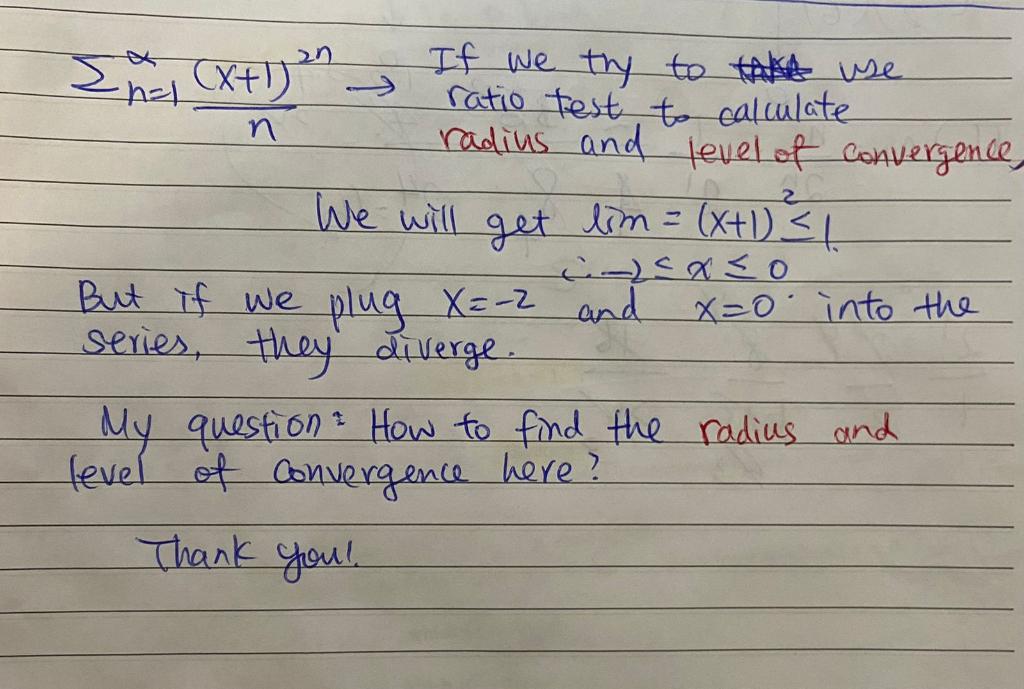 Σ_{n=1}^{∝} (x+1)^{2n} / n → If we try to use
ratio test to calculate
radius and level of convergence,
We will get lim = (x+1)^2 ≤ 1.
∴ -2 ≤ x ≤ 0
But if we plug x=-2 and x=0 into the
series, they diverge.
My question: How to find the radius and
level of convergence here?
Thank you!